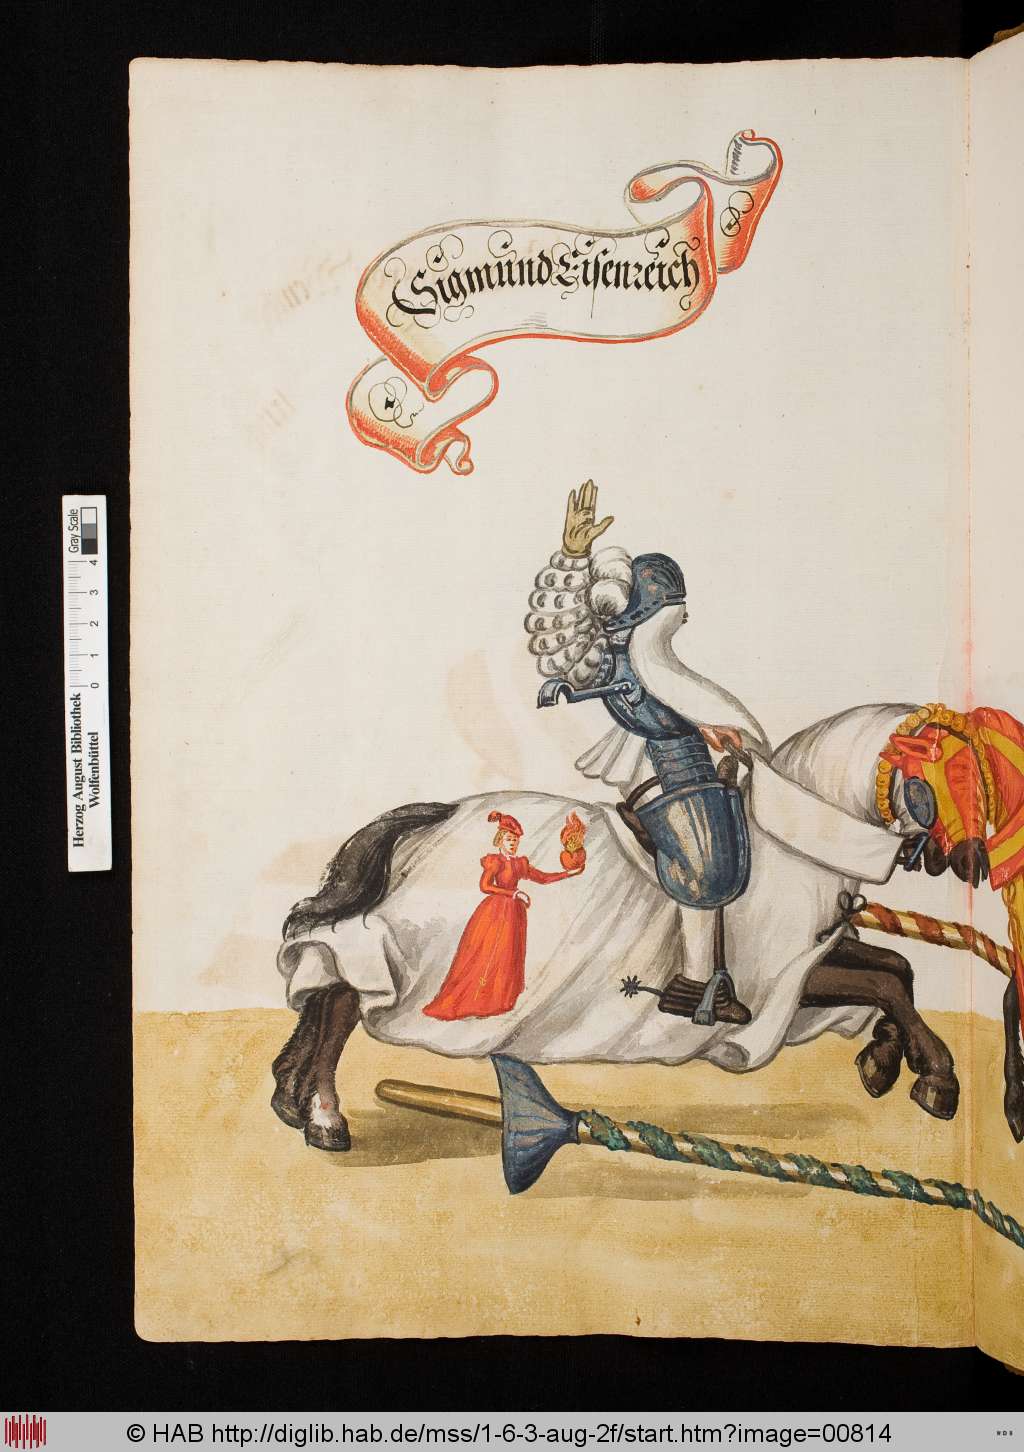 Sigmund Eisenreich
Gray Scale
0 1 2 3 4
Herzog August Bibliothek
Wolfenbüttel
© HAB http://diglib.hab.de/mss/1-6-3-aug-2f/start.htm?image=00814